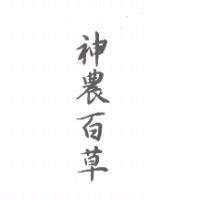 神農百草